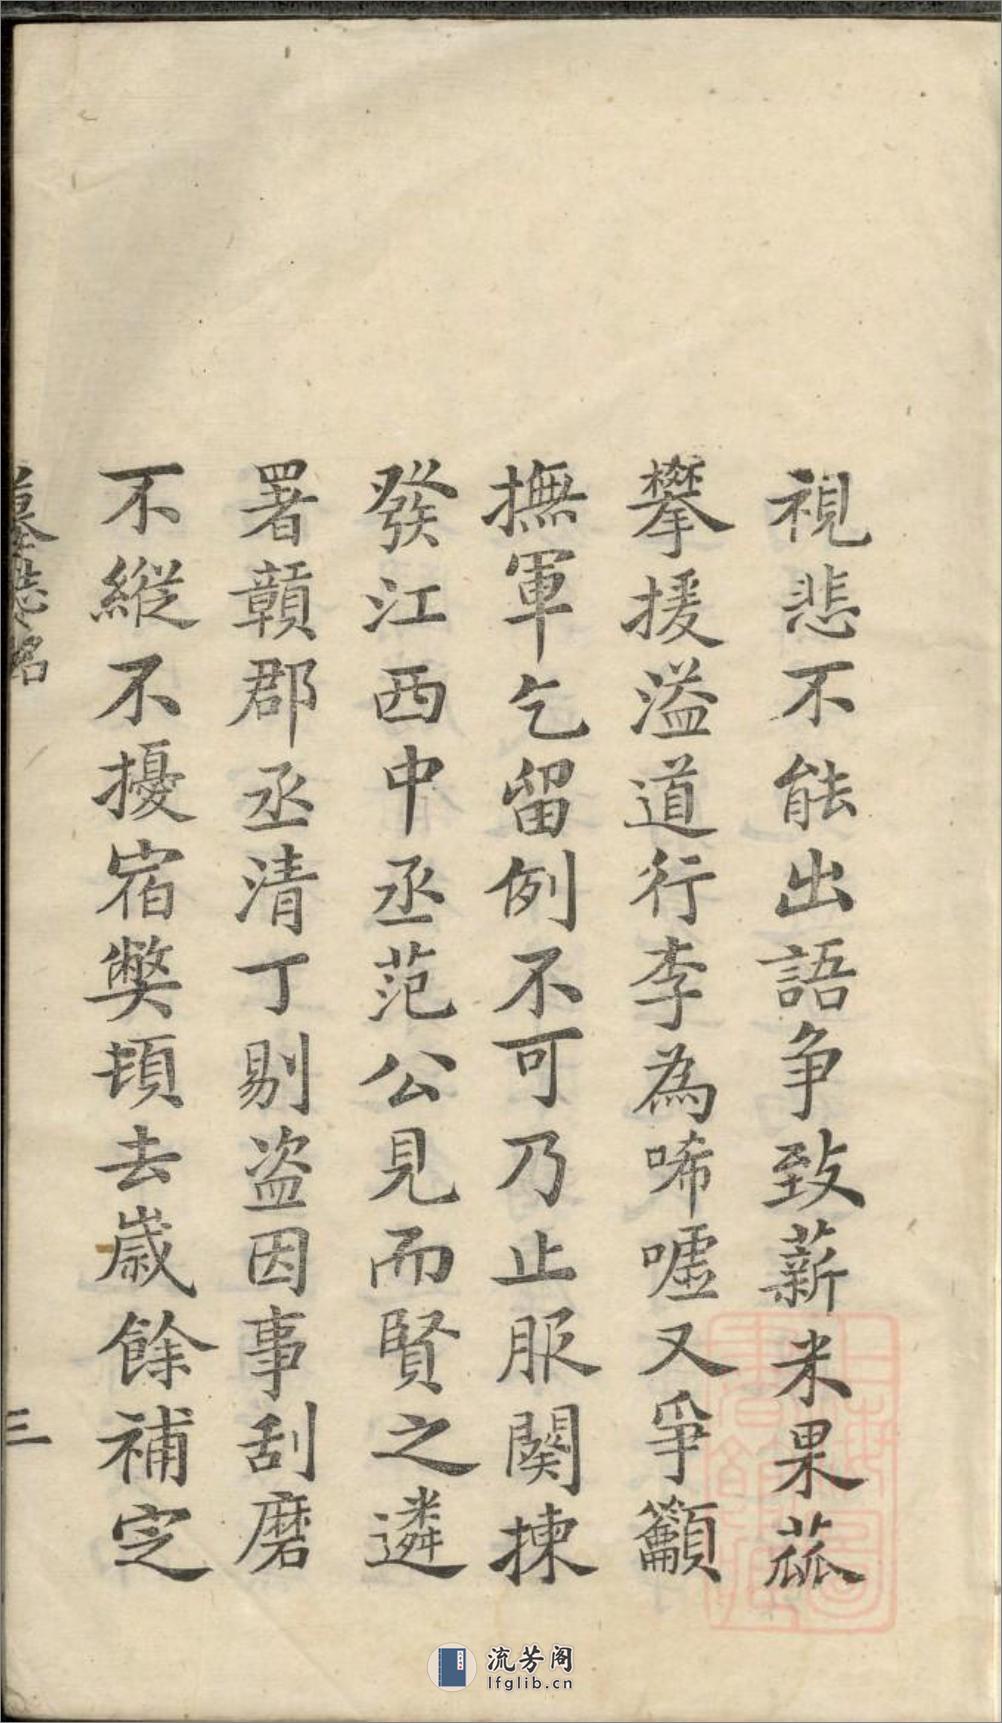 視悲不能出語争致薪米果蓏
攀援溢道行李為唏噓又爭籲
撫軍乞留例不可乃止服闋揀
發江西中丞范公見而賢之遴
署贛郡丞清丁剔盗因事刮磨
不縱不擾宿獘頓去嵗餘補定
墓誌銘
三
流芳阁
lfglib.cn